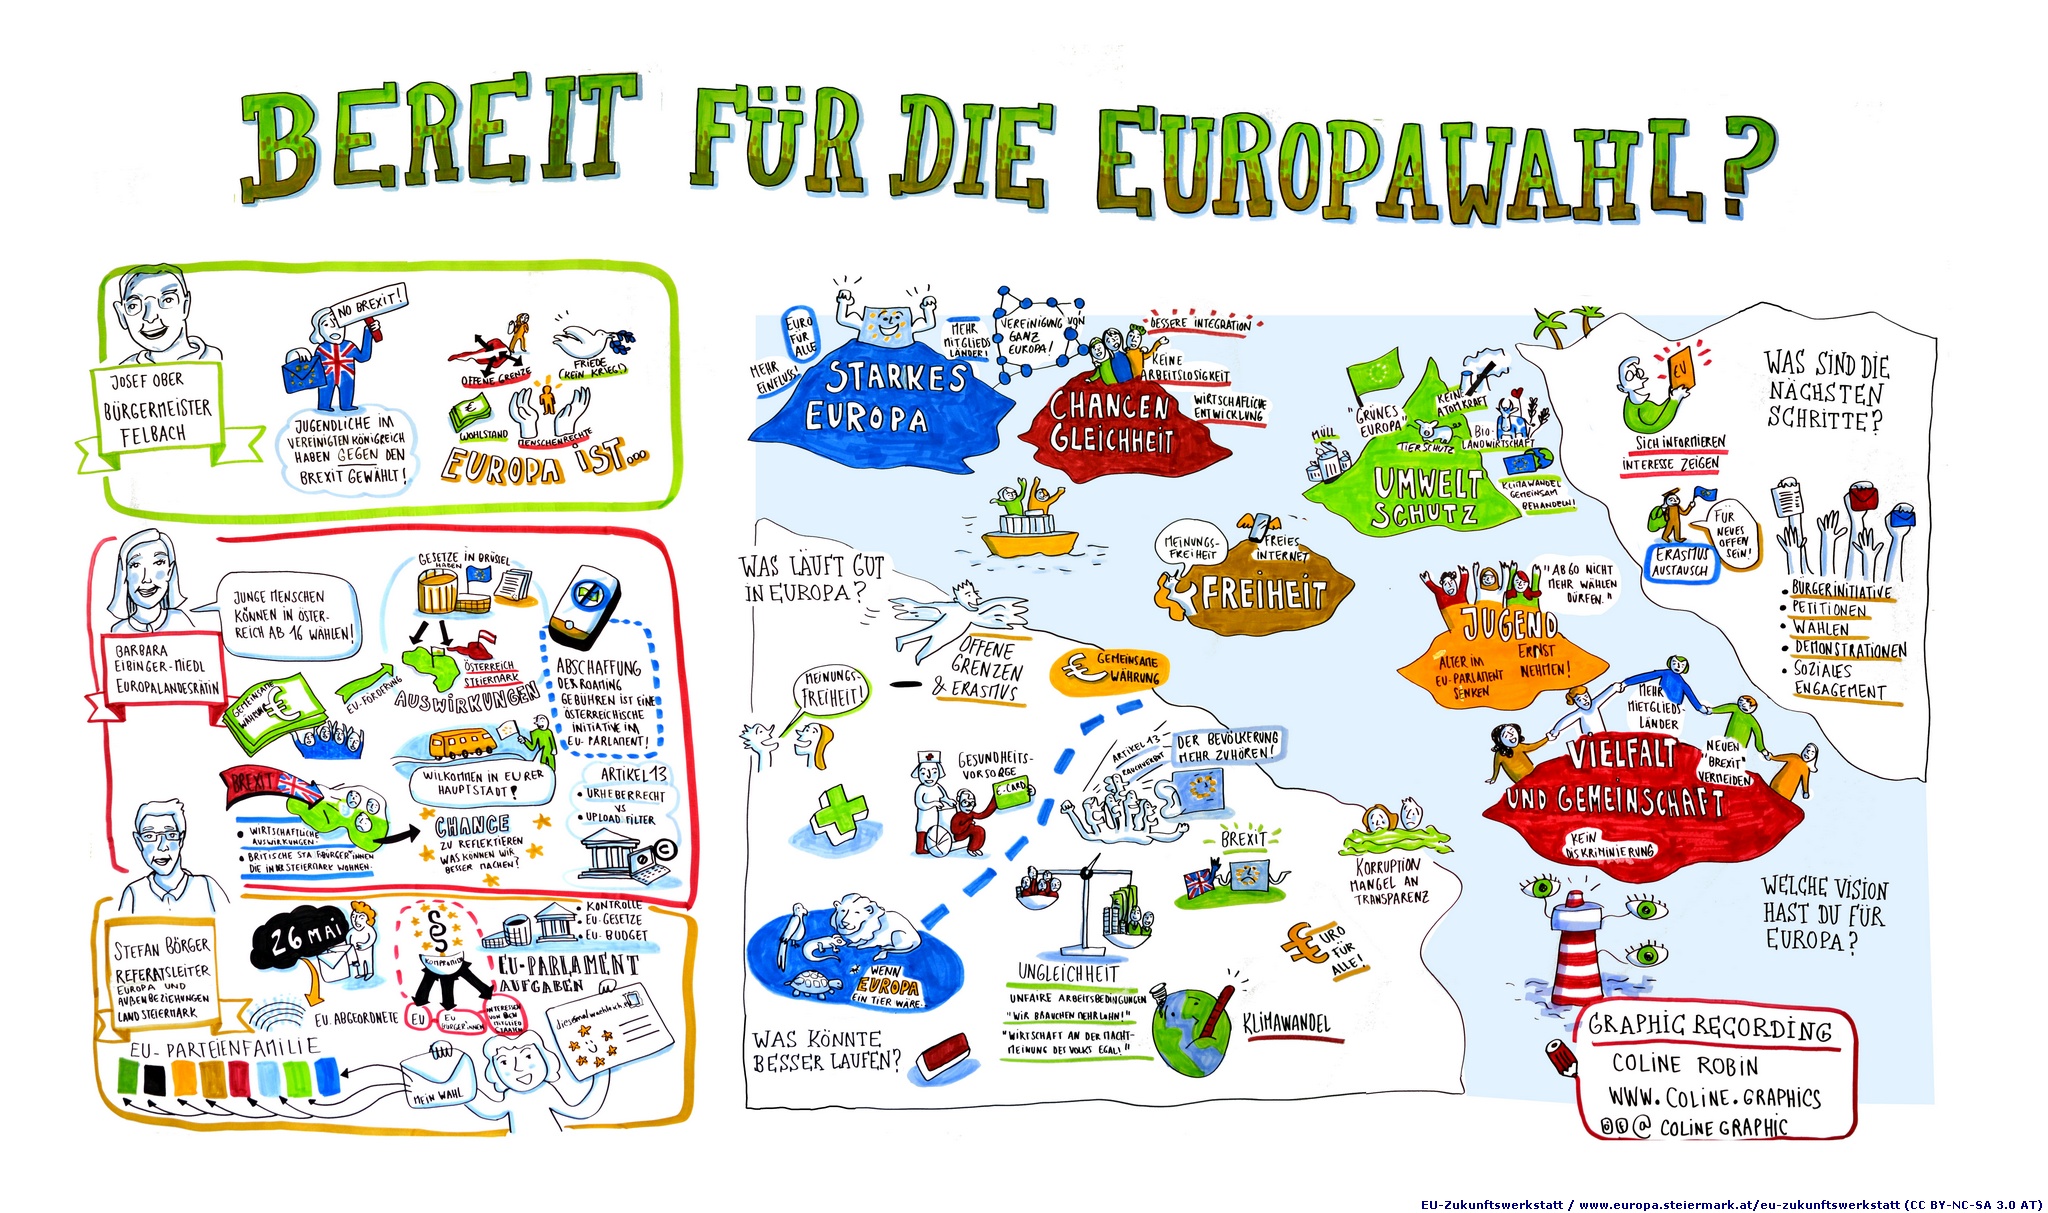 BEREIT FÜR DIE EUROPAWAHL?
JOSEF OBER
BÜRGERMEISTER
FELBACH
NO BREXIT!
JUGENDLICHE IM
VEREINIGTEN KÖNIGREICH
HABEN GEGEN DEN
BREXIT GEWÄHLT!
OFFENE GRENZE
FRIEDE
(KEIN KRIEG!)
WOHLSTAND
MENSCHENRECHTE
EUROPA IST...
BARBARA
EIBINGER-MIEDL
EUROPALANDESRÄTIN
JUNGE MENSCHEN
KÖNNEN IN ÖSTER-
REICH AB 16 WÄHLEN!
GESETZE IN BRÜSSEL
HABEN
ÖSTERREICH
STEIERMARK
AUSWIRKUNGEN
GEMEINSAME
WÄHRUNG
€
EU-FÖRDERUNG
ABSCHAFFUNG
DER ROAMING
GEBÜHREN IST EINE
ÖSTERREICHISCHE
INITIATIVE IM
EU-PARLAMENT!
WILKOMMEN IN EURER
HAUPTSTADT!
BREXIT
• WIRTSCHAFTLICHE
AUSWIRKUNGEN.
DIE IN DER STEIERMARK WOHNEN.
CHANCE
ZU REFLEKTIEREN
WAS KÖNNEN WIR
BESSER MACHEN?
ARTIKEL 13
• URHEBERRECHT
VS
• UPLOAD FILTER
©
STEFAN BÖRGER
REFERATSLEITER
EUROPA UND
AUßENBEZIEHUNGEN
LAND STEIERMARK
26 MAI
EU-ABGEORDNETE
§
KOMPROMISS
EU
EU
BÜRGER*INNEN
INTERESSEN
VON DEN
MITGLIED
STAATEN
• KONTROLLE
• EU-GESETZE
• EU-BUDGET
EU-PARLAMENT
AUFGABEN
diesmalwaehleich.eu
EU-PARTEIENFAMILIE
MEIN WAHL
EURO
FÜR
ALLE
MEHR
EINFLUSS!
MEHR
MITGLIEDS
LÄNDER!
STARKES
EUROPA
VEREINIGUNG VON
GANZ
EUROPA!
BESSERE INTEGRATION
KEINE
ARBEITSLOSIGKEIT
WIRTSCHAFLICHE
ENTWICKLUNG
CHANCEN
GLEICHHEIT
"GRÜNES
EUROPA"
KEINE
ATOMKRAFT
MÜLL
TIERSCHUTZ
BIO-
LANDWIRTSCHAFT
KLIMAWANDEL
GEMEINSAM
BEHANDELN!
UMWELT
SCHUTZ
EU
SICH INFORMIEREN
INTERESSE ZEIGEN
WAS SIND DIE
NÄCHSTEN
SCHRITTE?
ERASMUS
AUSTAUSCH
FÜR
NEUES
OFFEN
SEIN!
• BÜRGERINITIATIVE
• PETITIONEN
• WÄHLEN
• DEMONSTRATIONEN
• SOZIALES
ENGAGEMENT
MEINUNGS-
FREIHEIT
FREIES
INTERNET
FREIHEIT
"AB 60 NICHT
MEHR WÄHLEN
DÜRFEN."
JUGEND
ERNST
NEHMEN!
ALTER IM
EU-PARLAMENT
SENKEN
MEHR
MIETGLIEDS-
LÄNDER
VIELFALT
UND GEMEINSCHAFT
NEUEN
"BREXIT"
VERMEIDEN
KEIN
DISKRIMINIERUNG
WELCHE VISION
HAST DU FÜR
EUROPA?
WAS LÄUFT GUT
IN EUROPA?
OFFENE
GRENZEN
& ERASMUS
€ GEMEINSAME
WÄHRUNG
MEINUNGS-
FREIHEIT!
GESUNDHEITS-
VORSORGE
E-CARD
ARTIKEL 13
RAUCHVERBOT
DER BEVÖLKERUNG
MEHR ZUHÖREN!
BREXIT
KORRUPTION
MANGEL AN
TRANSPARENZ
WENN
EUROPA
EIN TIER WÄRE...
UNGLEICHHEIT
UNFAIRE ARBEITSBEDINGUNGEN
"WIR BRAUCHEN MEHR LOHN!"
"WIRTSCHAFT AN DER MACHT-
MEINUNG DES VOLKS EGAL!"
€URO
FÜR
ALLE!
KLIMAWANDEL
WAS KÖNNTE
BESSER LAUFEN?
GRAPHIC RECORDING
COLINE ROBIN
WWW.COLINE.GRAPHICS
@ COLINE GRAPHIC
EU-Zukunftswerkstatt / www.europa.steiermark.at/eu-zukunftswerkstatt (CC BY-NC-SA 3.0 AT)